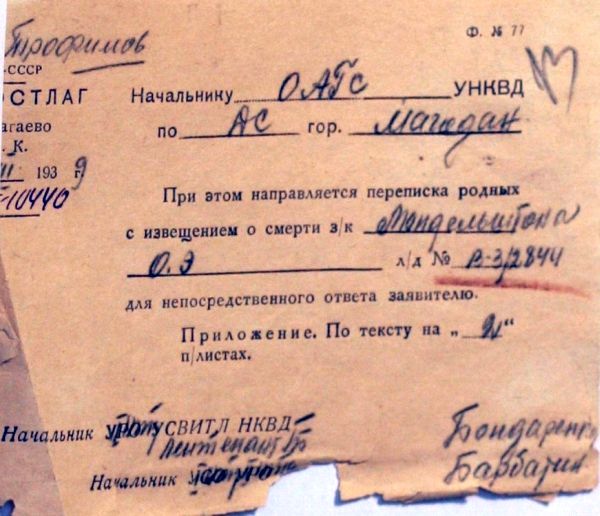 Трофимов
Ф. № 77
-СССР
ОСТЛАГ
Начальнику ОАГС УНКВД
агаево
по ДС гор. Магадан
. К.
193 9 г
-10440
При этом направляется переписка родных
с извещением о смерти з/к Мандельштама
О.Э л/д № р-3/2844
для непосредственного ответа заявителю.
Приложение. По тексту на „ “
п/листах.
Начальник УСВИТЛ НКВД
Лейтенант ГБ
Бондаренко
Начальник
Барбатин